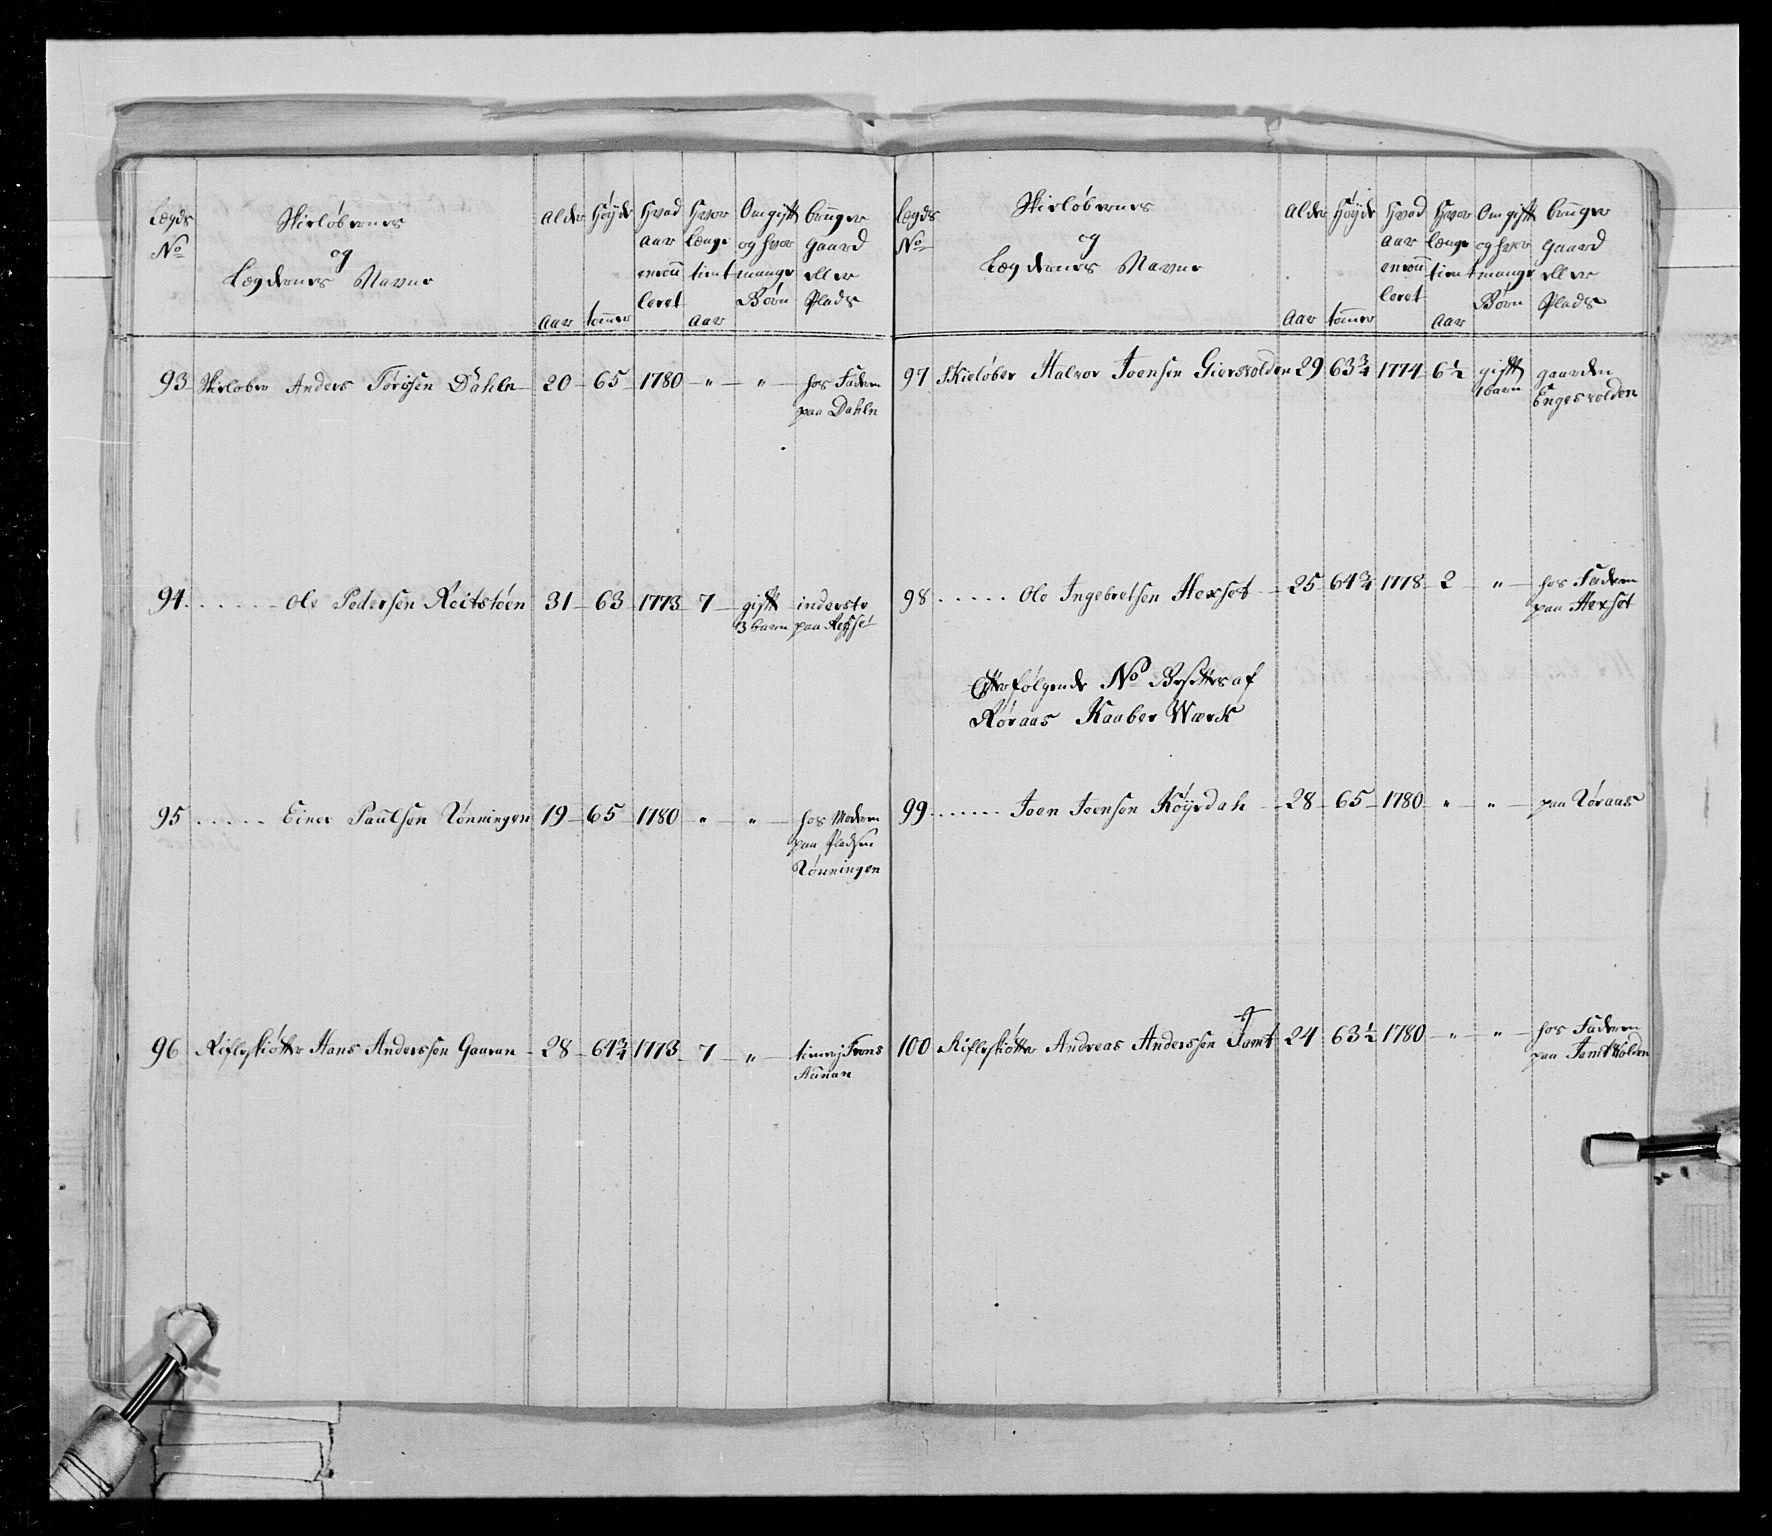 Lægds
No
Skieløbernes
og
Lægdernes Navne
Alder
Aar
Høyde
tommer
Hvad
Aar
enroul
leret
Hvor
længe
tient
Aar
Om gift
og hvor
mange
Børn
bruger
gaard
eller
Plads
93 Skieløber Anders Dahle 20 65 1780 " " hos Faderen
paa Dahle
94 ...... Ole Pedersen Reitstøen 31 63 1773 7 gift inderste
3 barn paa
95 ..... Einer Paulsen Rønningen 19 65 1780 " " hos Moderen
paa Pladsen
Rønningen
96 Rifleskiøtter Hans Anderssen Gaaren 28 64 3/4 1773 7 "
Aunan
Lægds
No
Skieløbernes
og
Lægdernes Navne
Alder
Aar
Høyde
tommer
Hvad
Aar
enroul
leret
Hvor
længe
tient
Aar
Om gift
og hvor
mange
Børn
bruger
gaard
eller
Plads
97 Skieløber Halvor Joensen Giersvolden 29 63 3/4 1774 6 1/2 gift gaarden
1 barn Engesvolden
98 ..... Ole Ingebretsen Hexset 25 64 3/4 1778 2 " hos Faderen
paa Hexset
Efterfølgende No Besættes af
Røraas Kaaber Værk
99 ...... Joen Joensen Køyrdah 28 65 1780 " " paa Røraas
100 Rifleskiøtter Andreas Anderssen Jamt 24 63 1/2 1780 " " hos Faderen
paa Jamtvolden